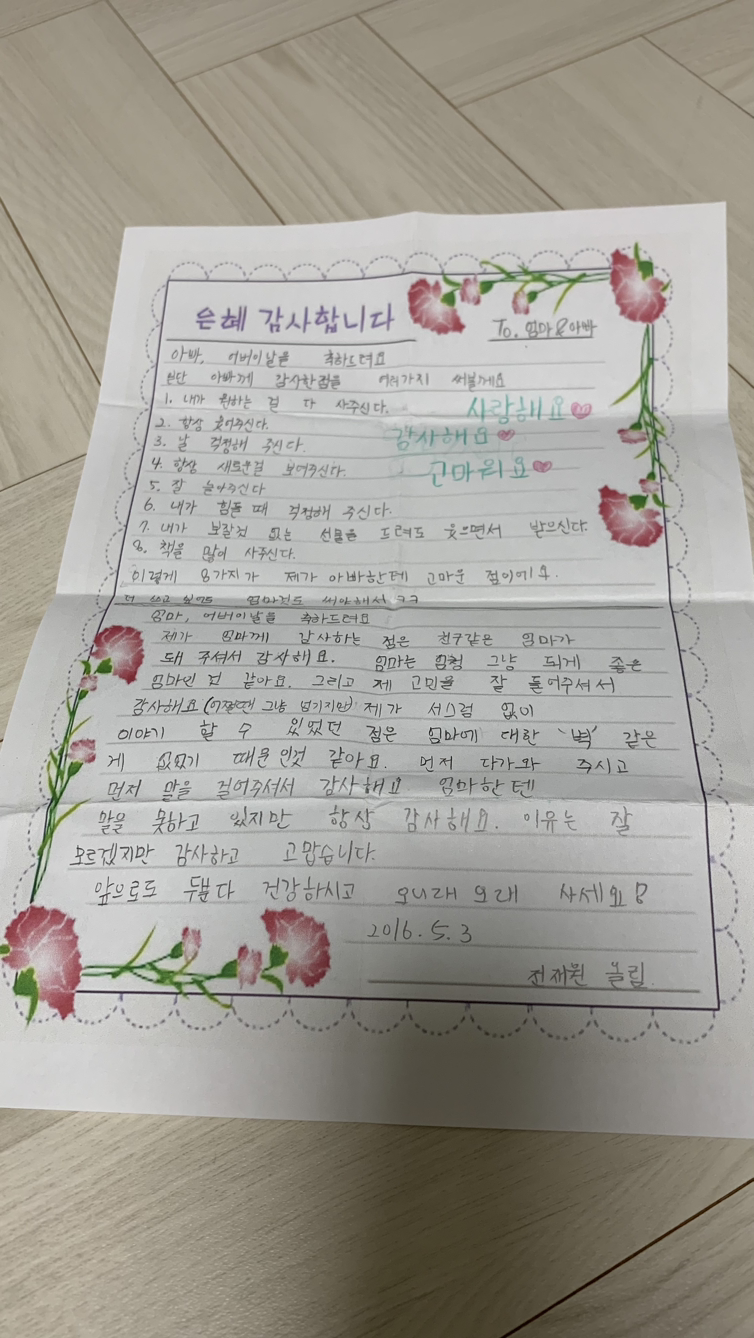 은혜 감사합니다
To. 엄마&아빠
아빠, 어버이날을 축하드려요
일단 아빠께 감사한점을 여러가지 써볼께요
1. 내가 원하는 걸 다 사주신다.
사랑해요♡
2. 항상 웃어주신다.
감사해요♡
3. 날 걱정해 주신다.
고마워요♡
4. 항상 새로운걸 보여주신다.
5. 잘 놀아주신다
6. 내가 힘들 때 걱정해 주신다.
7. 내가 보잘것 없는 선물을 드려도 웃으면서 받으신다.
8. 책을 많이 사주신다.
이렇게 8가지가 제가 아빠한테 고마운 점이에요.
더 쓰고 싶어도 엄마것도 써야해서 ㅋㅋ
엄마, 어버이날을 축하드려요
제가 엄마께 감사하는 점은 친구같은 엄마가
돼 주셔서 감사해요. 엄마는 엄청 그냥 되게 좋은
엄마인 것 같아요. 그리고 제 고민을 잘 들어주셔서
감사해요(어쩔땐 그냥 넘기지만) 제가 서스럼 없이
이야기 할 수 있었던 점은 엄마에 대한 '벽' 같은
게 없었기 때문인것 같아요. 먼저 다가와 주시고
먼저 말을 걸어주셔서 감사해요. 엄마한텐
말을 못하고 있지만 항상 감사해요. 이유는 잘
모르겠지만 감사하고 고맙습니다.
앞으로도 두분다 건강하시고 오래 오래 사세요!
2016. 5. 3
올림